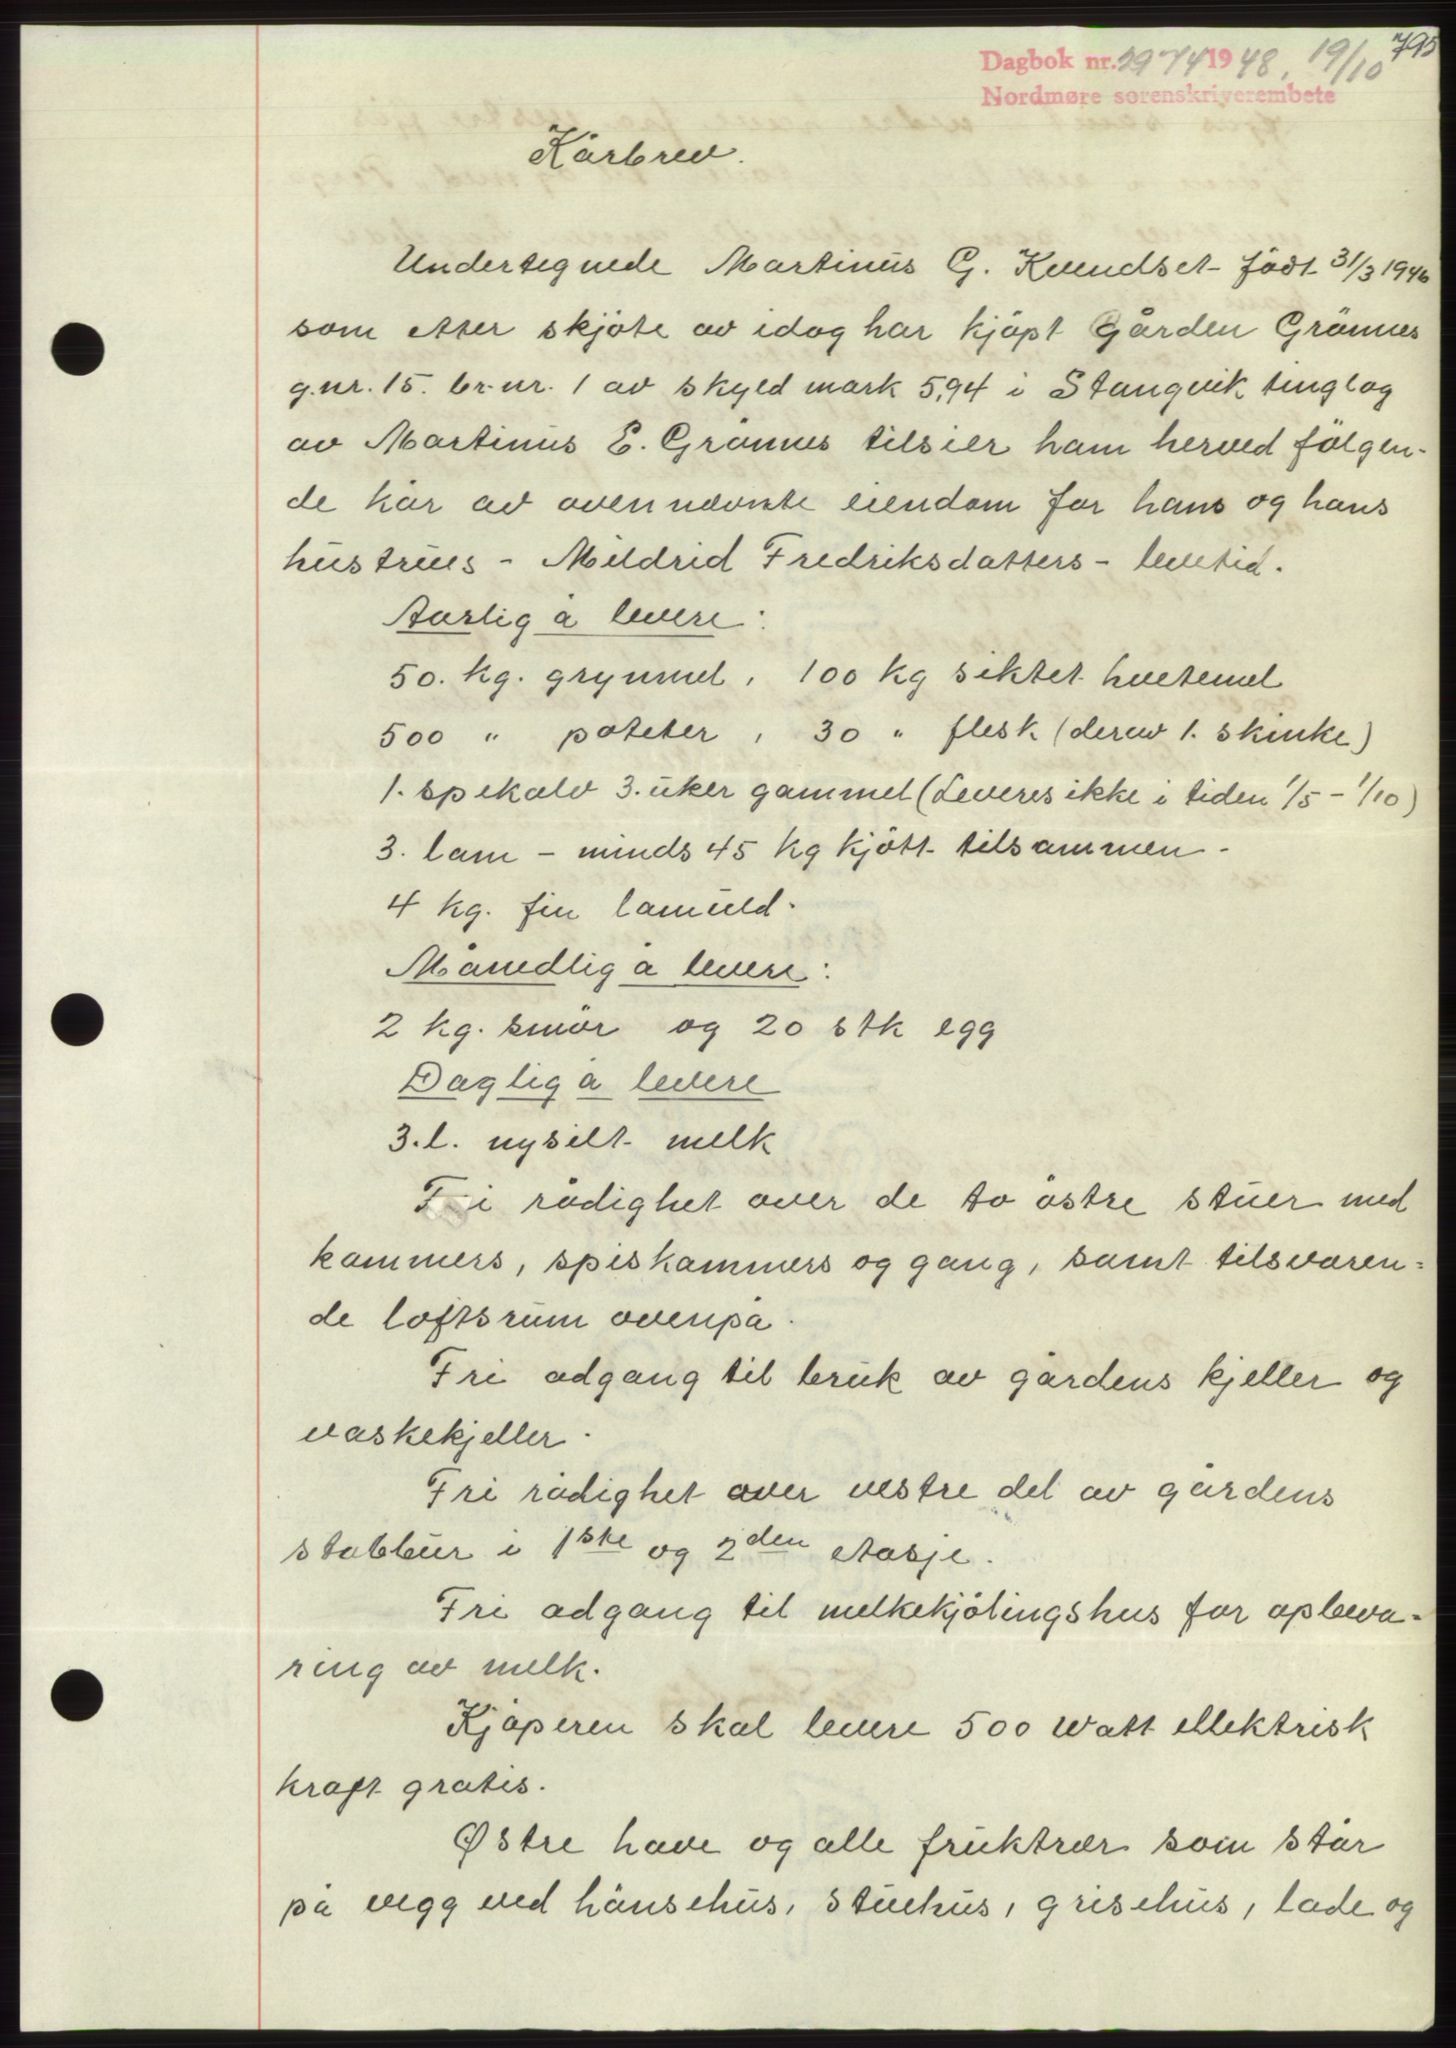 795
Dagbok nr. 2974 1948, 19/10
Nordmøre sorenskriverembete
Kårbrev.
Undertegnede Martinus G. Kvendset født 31/3 1946
som etter skjöte av idag har kjöpt Gården Grönnes
g.nr. 15. br.nr. 1 av skyld mark 5,94 i Stangvik tinglag
av Martinus E. Grönnes tilsier ham herved fölgen-
de kår av ovennevnte eiendom for hans og hans
hustrues - Mildrid Fredriksdatters - levetid.
Aarlig å levere:
50. kg. grynmel, 100 kg siktet hvetemel
500 " poteter, 30 " flesk (derav 1. skinke)
1. spekalv 3. uker gammel (Leveres ikke i tiden 1/5 - 1/10)
3. lam - minds 45 kg kjött tilsammen -
4 kg. fin lamuld.
Månedlig å levere:
2 kg. smör og 20 stk egg
Daglig å levere
3. l. nysilt melk
Fri rådighet over de to östre stuer med
kammers, spiskammers og gang, samt tilsvaren=
de loftsrum ovenpå.
Fri adgang til bruk av gårdens kjeller og
vaskekjeller.
Fri rådighet over vestre del av gårdens
stabbur i 1ske og 2den etasje.
Fri adgang til melkekjölingshus for opbeva=
ring av melk.
Kjöperen skal levere 500 watt ellektrisk
kraft gratis.
Østre have og alle fruktrær som står
på vegg ved hönsehus, stuehus, grisehus, lade og